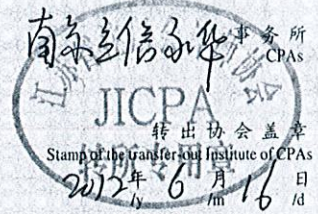 南京立信永华事务所
CPAs
江苏 协会
JICPA
转出协会盖章
Stamp of the transfer-out Institute of CPAs
转所专用章
2012年6月16日
/y /m /d